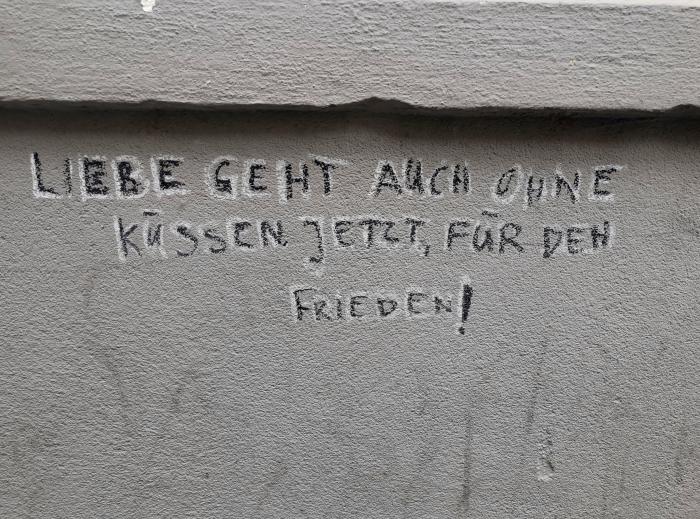 LIEBE GEHT AUCH OHNE
KÜSSEN JETZT, FÜR DEN
FRIEDEN!